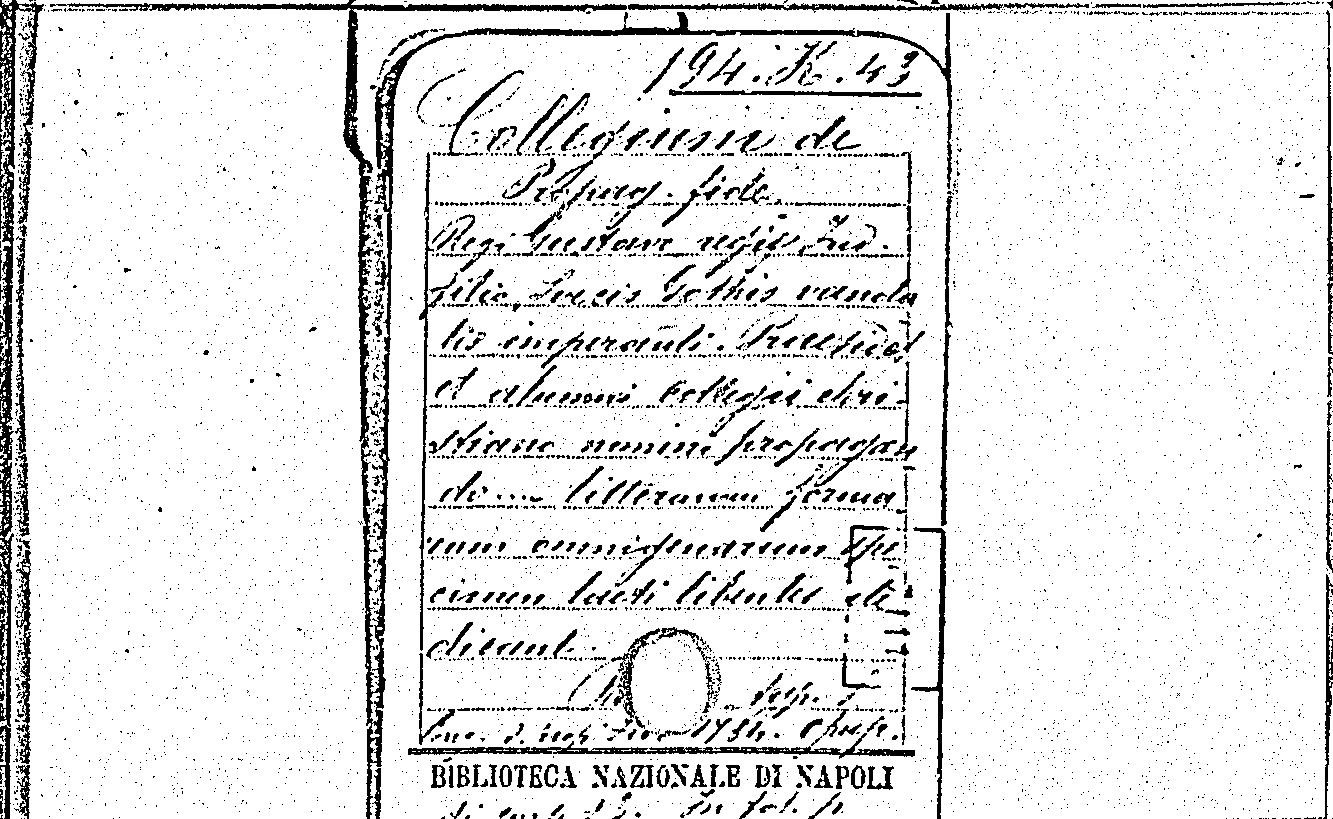 194.K.43
Collegium de
Propag. fide.
Regi Gustavo regis Fred.
filio, Svecis Gothis vanda
lis imperanti. Praesides
et alumni Collegii chri-
stiano nomini propagan
do ... litterarum forma
rum omnigenarum spe
cimen laeti libentes de
dicant.
typ.
1784. Opusc.
BIBLIOTECA NAZIONALE DI NAPOLI
di carte In fol. p